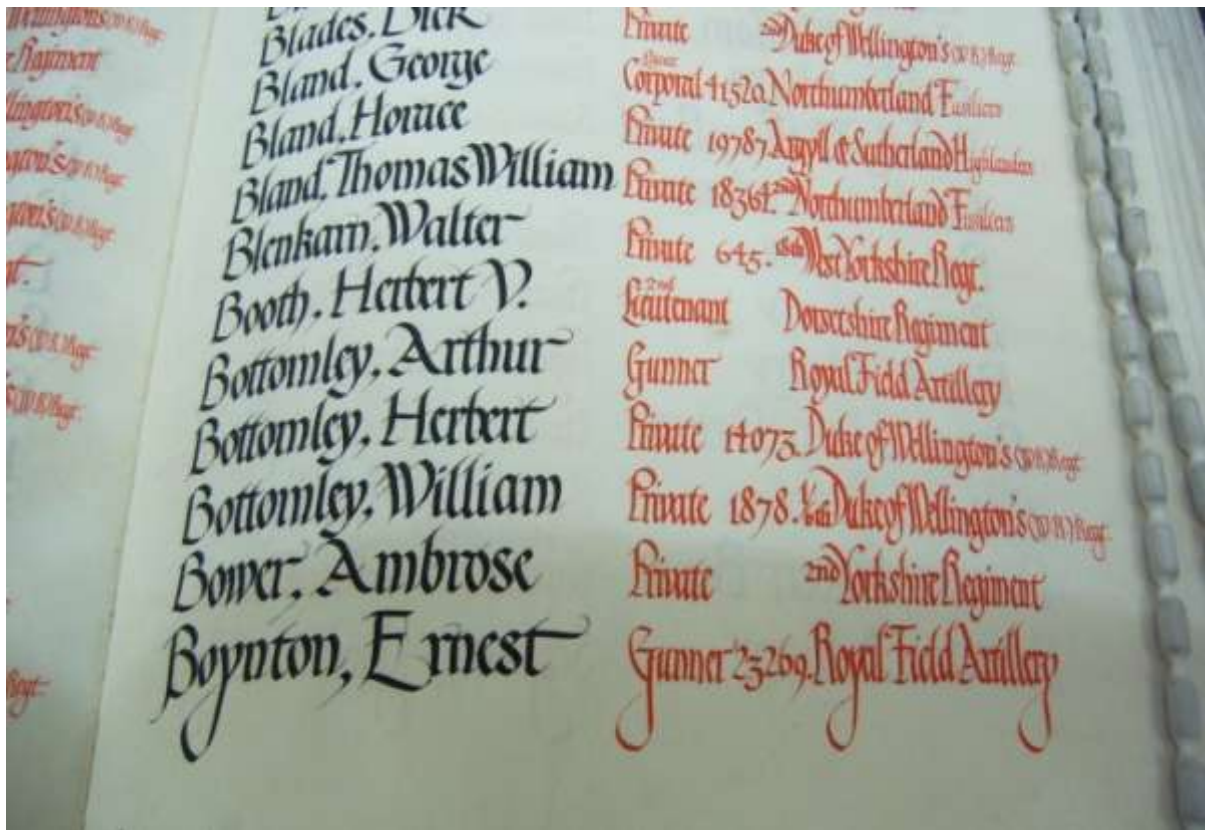 Wellington's (W R) Regt.
Regiment
Wellington's (W R) Regt.
(W R) Regt.
(W R) Regt.
(W R) Regt.
(W R) Regt.
Regt.
Blades, Dick Private 2nd Duke of Wellington's (W R) Regt.
Bland, George Lance Corporal 41520. Northumberland Fusiliers
Bland, Horace Private 19787 Argyll & Sutherland Highlanders
Bland, Thomas William Private 18364. 2nd Northumberland Fusiliers
Blenkarn, Walter Private 645. 18th West Yorkshire Regt.
Booth, Herbert V. 2nd Lieutenant Dorsetshire Regiment
Bottomley, Arthur Gunner Royal Field Artillery
Bottomley, Herbert Private 14073. Duke of Wellington's (W R) Regt.
Bottomley, William Private 1878. 1/6th Duke of Wellington's (W R) Regt.
Bower, Ambrose Private 2nd Yorkshire Regiment
Boynton, Ernest Gunner 23269. Royal Field Artillery